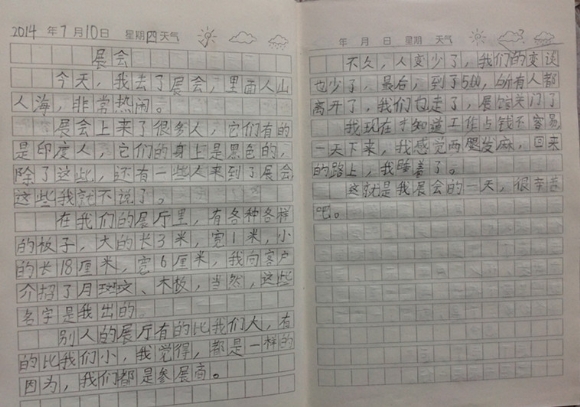 2014 年 7 月 10 日 星期 四 天气
展会
今天,我去了展会,里面人山
人海,非常热闹。
展会上来了很多人,它们有的
是印度人,它们的身上是黑色的,
除了这些,还有一些人来到了展会
这些我就不说了。
在我们的展厅里,有各种各样
的板子,大的长3米,宽1米,小
的长18厘米,宽6厘米,我向客户
介绍了月 、木板,当然,这些
名字是我出的。
别人的展厅有的比我们大,有
的比我们小,我觉得,都是一样的
因为,我们都是参展商。
年 月 日 星期 天气
不久,人变少了,我们的变谈
也少了,最后,到了5点,所有人都
离开了,我们也走了,展馆关门了
我现在才知道工作占钱不容易
一天下来,我感觉两腿发麻,回来
的路上,我睡着了。
这就是我展会的一天,很辛苦
吧。